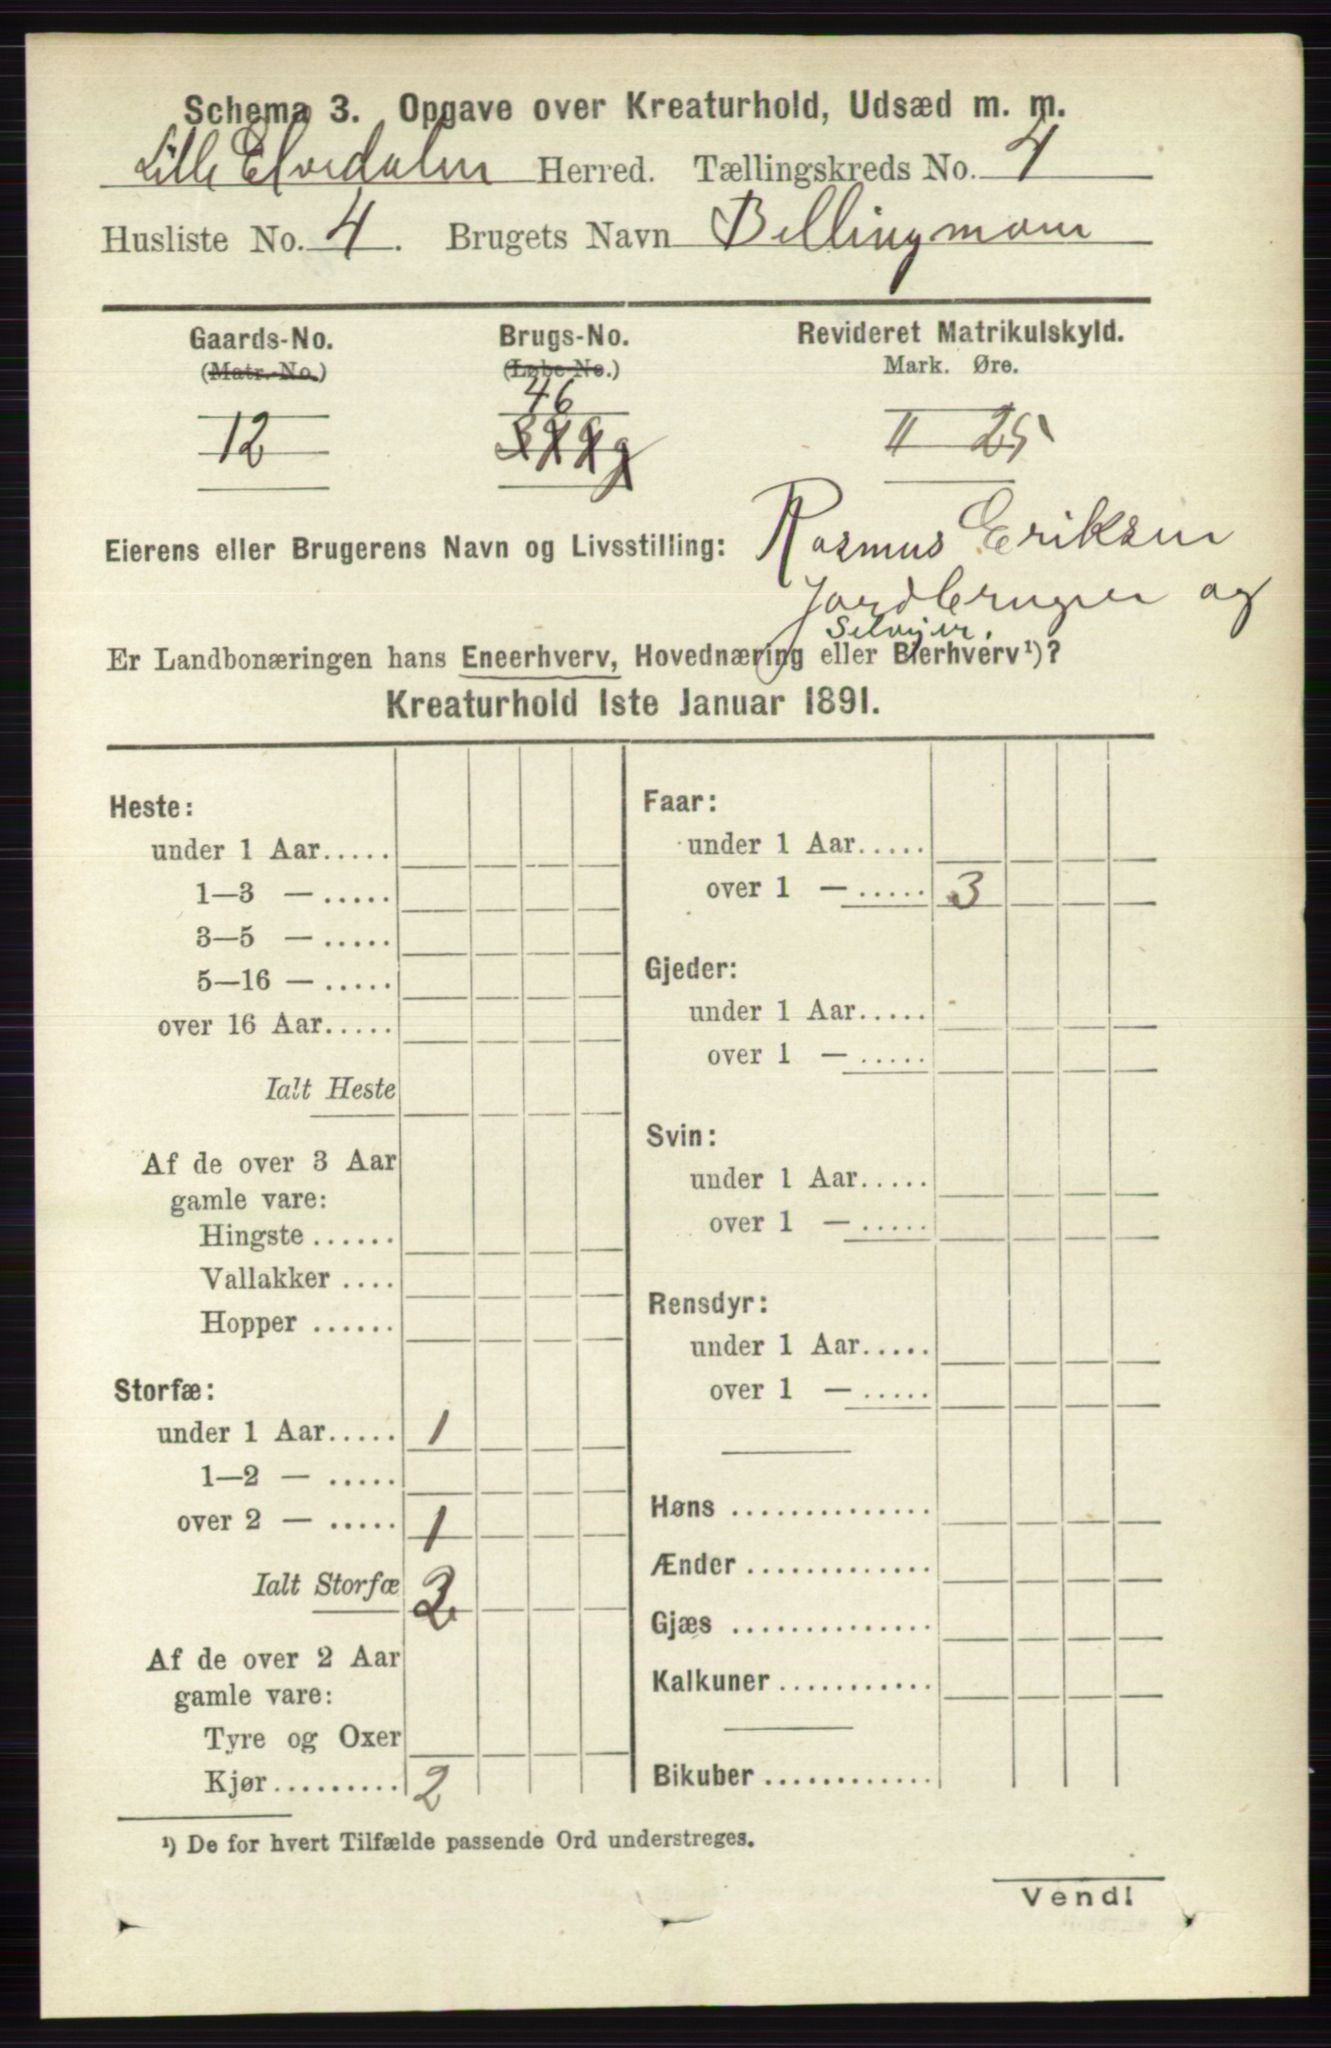 Schema 3. Opgave over Kreaturhold, Udsæd m. m.
Lille Elvedalen Herred. Tællingskreds No. 4
Husliste No. 4. Brugets Navn Bellingmoen
Gaards-No. Brugs-No. Revideret Matrikulskyld.
(Matr.-No.) (Løbe-No.) Mark. Øre.
46
12 " 25
Eierens eller Brugerens Navn og Livsstilling: Rasmus Eriksen
Jordbruger og
Selveier.
Er Landbonæringen hans Eneerhverv, Hovednæring eller Bierhverv¹)?
Kreaturhold 1ste Januar 1891.
Heste:
under 1 Aar.....
1—3 — .....
3—5 — .....
5—16 — .....
over 16 Aar.....
Ialt Heste
Af de over 3 Aar
gamle vare:
Hingste ......
Vallakker ....
Hopper ......
Storfæ:
under 1 Aar..... 1
1—2 — .....
over 2 — ..... 1
Ialt Storfæ 2
Af de over 2 Aar
gamle vare:
Tyre og Oxer
Kjør......... 2
Faar:
under 1 Aar.....
over 1 — ..... 3
Gjeder:
under 1 Aar.....
over 1 — .....
Svin:
under 1 Aar.....
over 1 — .....
Rensdyr:
under 1 Aar.....
over 1 — .....
Høns ..............
Ænder .............
Gjæs ..............
Kalkuner ...........
Bikuber ............
¹) De for hvert Tilfælde passende Ord understreges.
Vend!